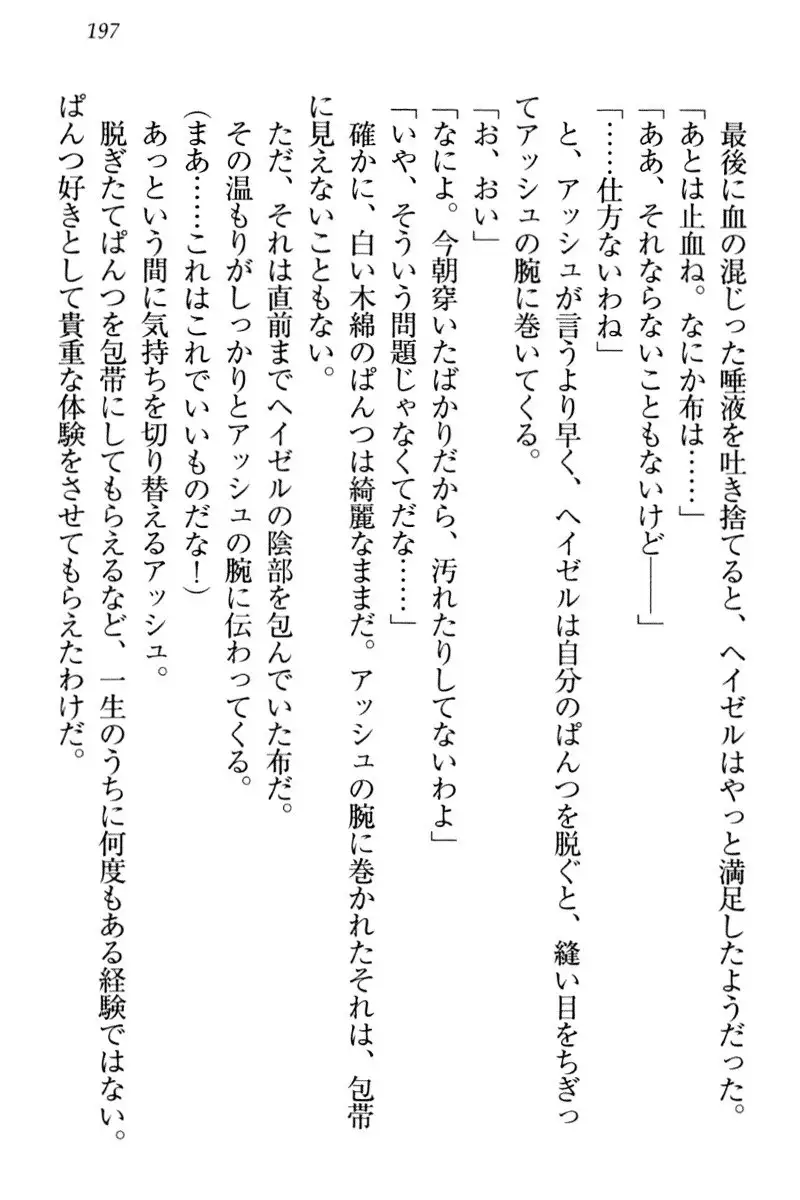 197
最後に血の混じった唾液を吐き捨てると、ヘイゼルはやっと満足したようだった。
「あとは止血ね。なにか布は……」
「ああ、それならないこともないけど――」
「……仕方ないわね」
と、アッシュが言うより早く、ヘイゼルは自分のぱんつを脱ぐと、縫い目をちぎっ
てアッシュの腕に巻いてくる。
「お、おい」
「なによ。今朝穿いたばかりだから、汚れたりしてないわよ」
「いや、そういう問題じゃなくてだな……」
確かに、白い木綿のぱんつは綺麗なままだ。アッシュの腕に巻かれたそれは、包帯
に見えないこともない。
ただ、それは直前までヘイゼルの陰部を包んでいた布だ。
その温もりがしっかりとアッシュの腕に伝わってくる。
(まあ……これはこれでいいものだな！)
あっという間に気持ちを切り替えるアッシュ。
脱ぎたてぱんつを包帯にしてもらえるなど、一生のうちに何度もある経験ではない。
ぱんつ好きとして貴重な体験をさせてもらえたわけだ。